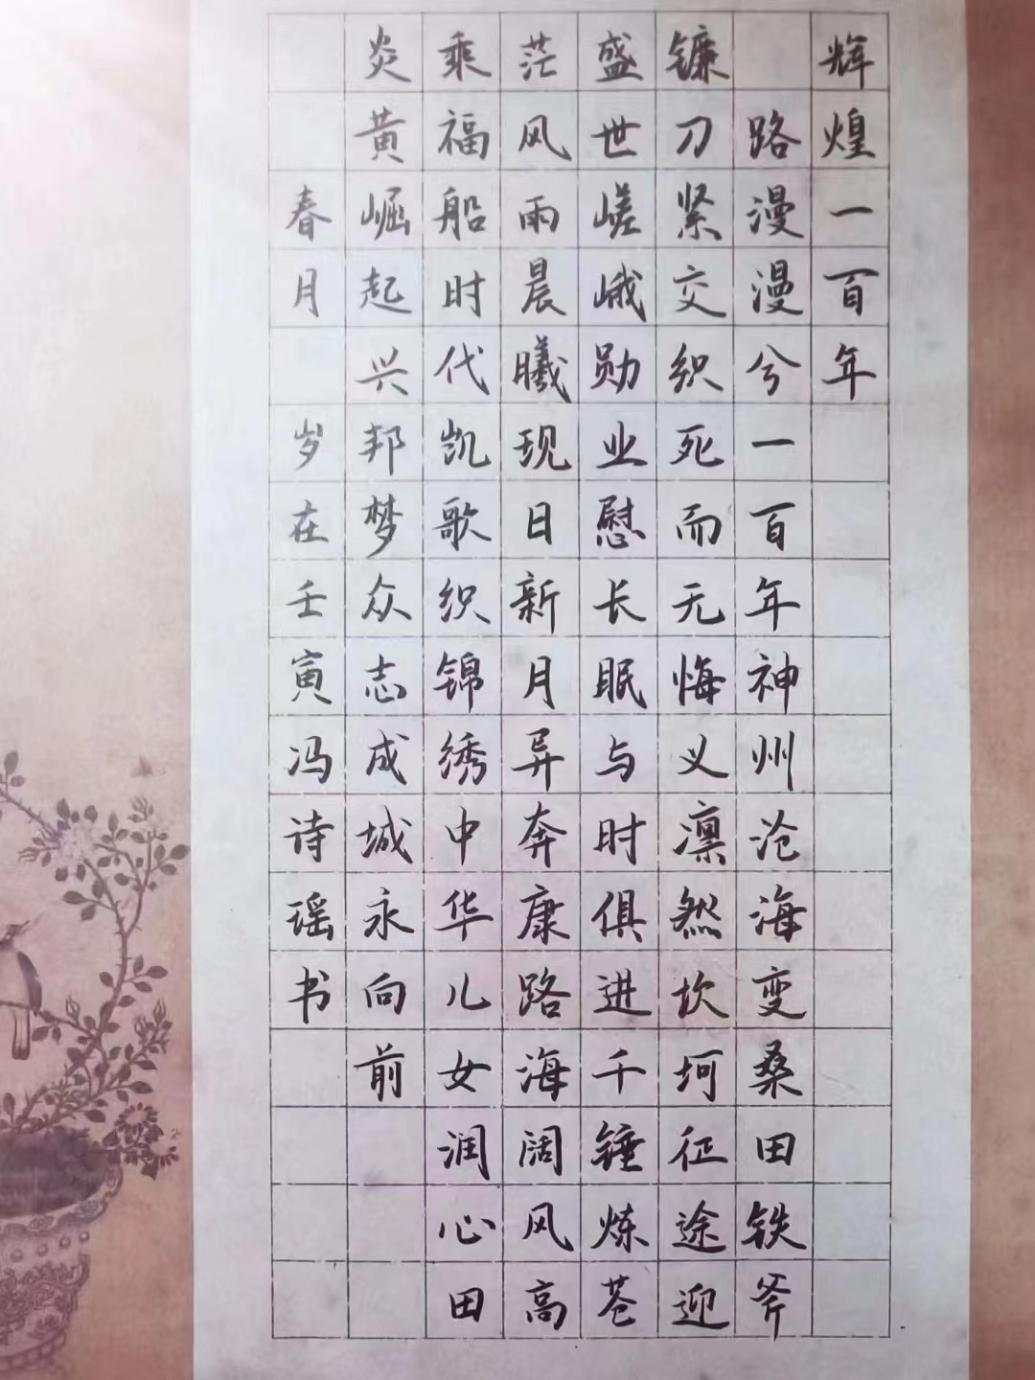 辉煌一百年
路漫漫兮一百年神州沧海变桑田铁斧
镰刀紧交织死而无悔义凛然坎坷征途迎
盛世嵯峨勋业慰长眠与时俱进千锤炼苍
茫风雨晨曦现日新月异奔康路海阔风高
乘福船时代凯歌织锦绣中华儿女润心田
炎黄崛起兴邦梦众志成城永向前
春月岁在壬寅冯诗瑶书